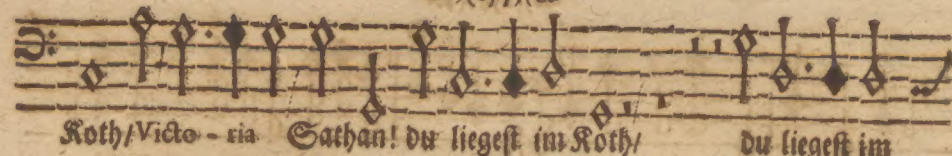 Koth/Victo - ria Sathan! du liegest im Koth/ du liegest im